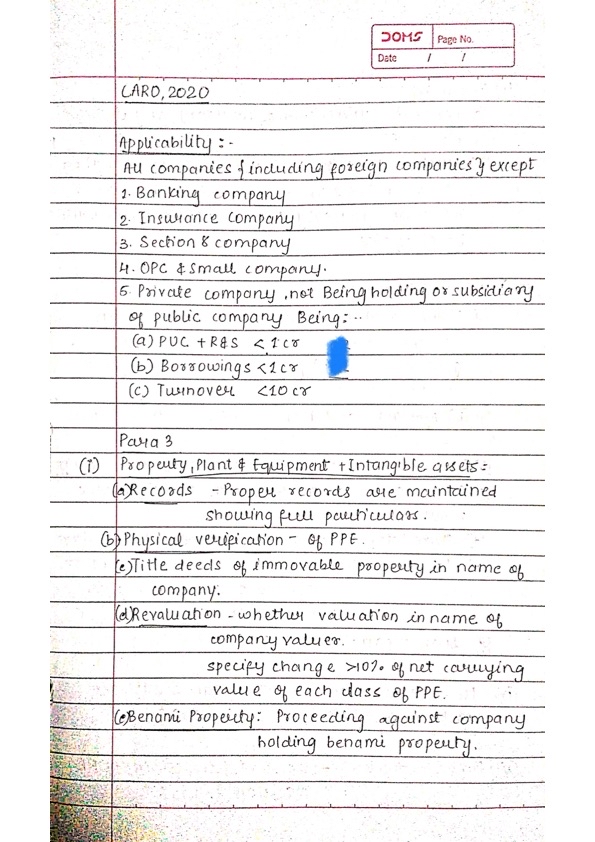 DOMS Page No.
Date / /
CARO, 2020
Applicability :-
All companies {including foreign companies} except
1. Banking company
2. Insurance Company
3. Section 8 company
4. OPC & Small company.
5. Private company, not Being holding or subsidiary
of public company Being:-
(a) PUC + R&S < 1 cr
(b) Borrowings < 1 cr
(c) Turnover < 10 cr
Para 3
(i) Property, Plant & Equipment + Intangible assets:
(a) Records - Proper records are maintained
showing full particulars.
(b) Physical verification - of PPE.
(c) Title deeds of immovable property in name of
company.
(d) Revaluation - whether valuation in name of
company valuer.
specify change >10% of net carrying
value of each class of PPE.
(e) Benami Property: Proceeding against company
holding benami property.